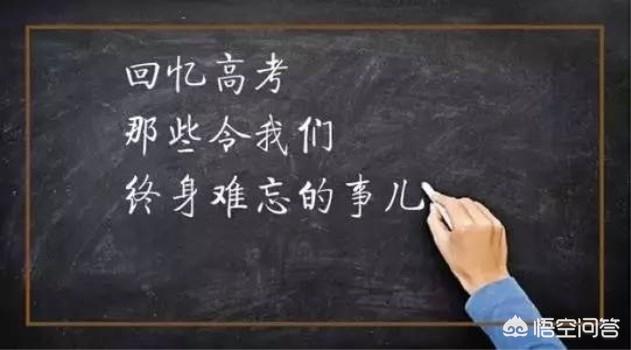 回忆高考
那些令我们
终身难忘的事儿
悟空问答